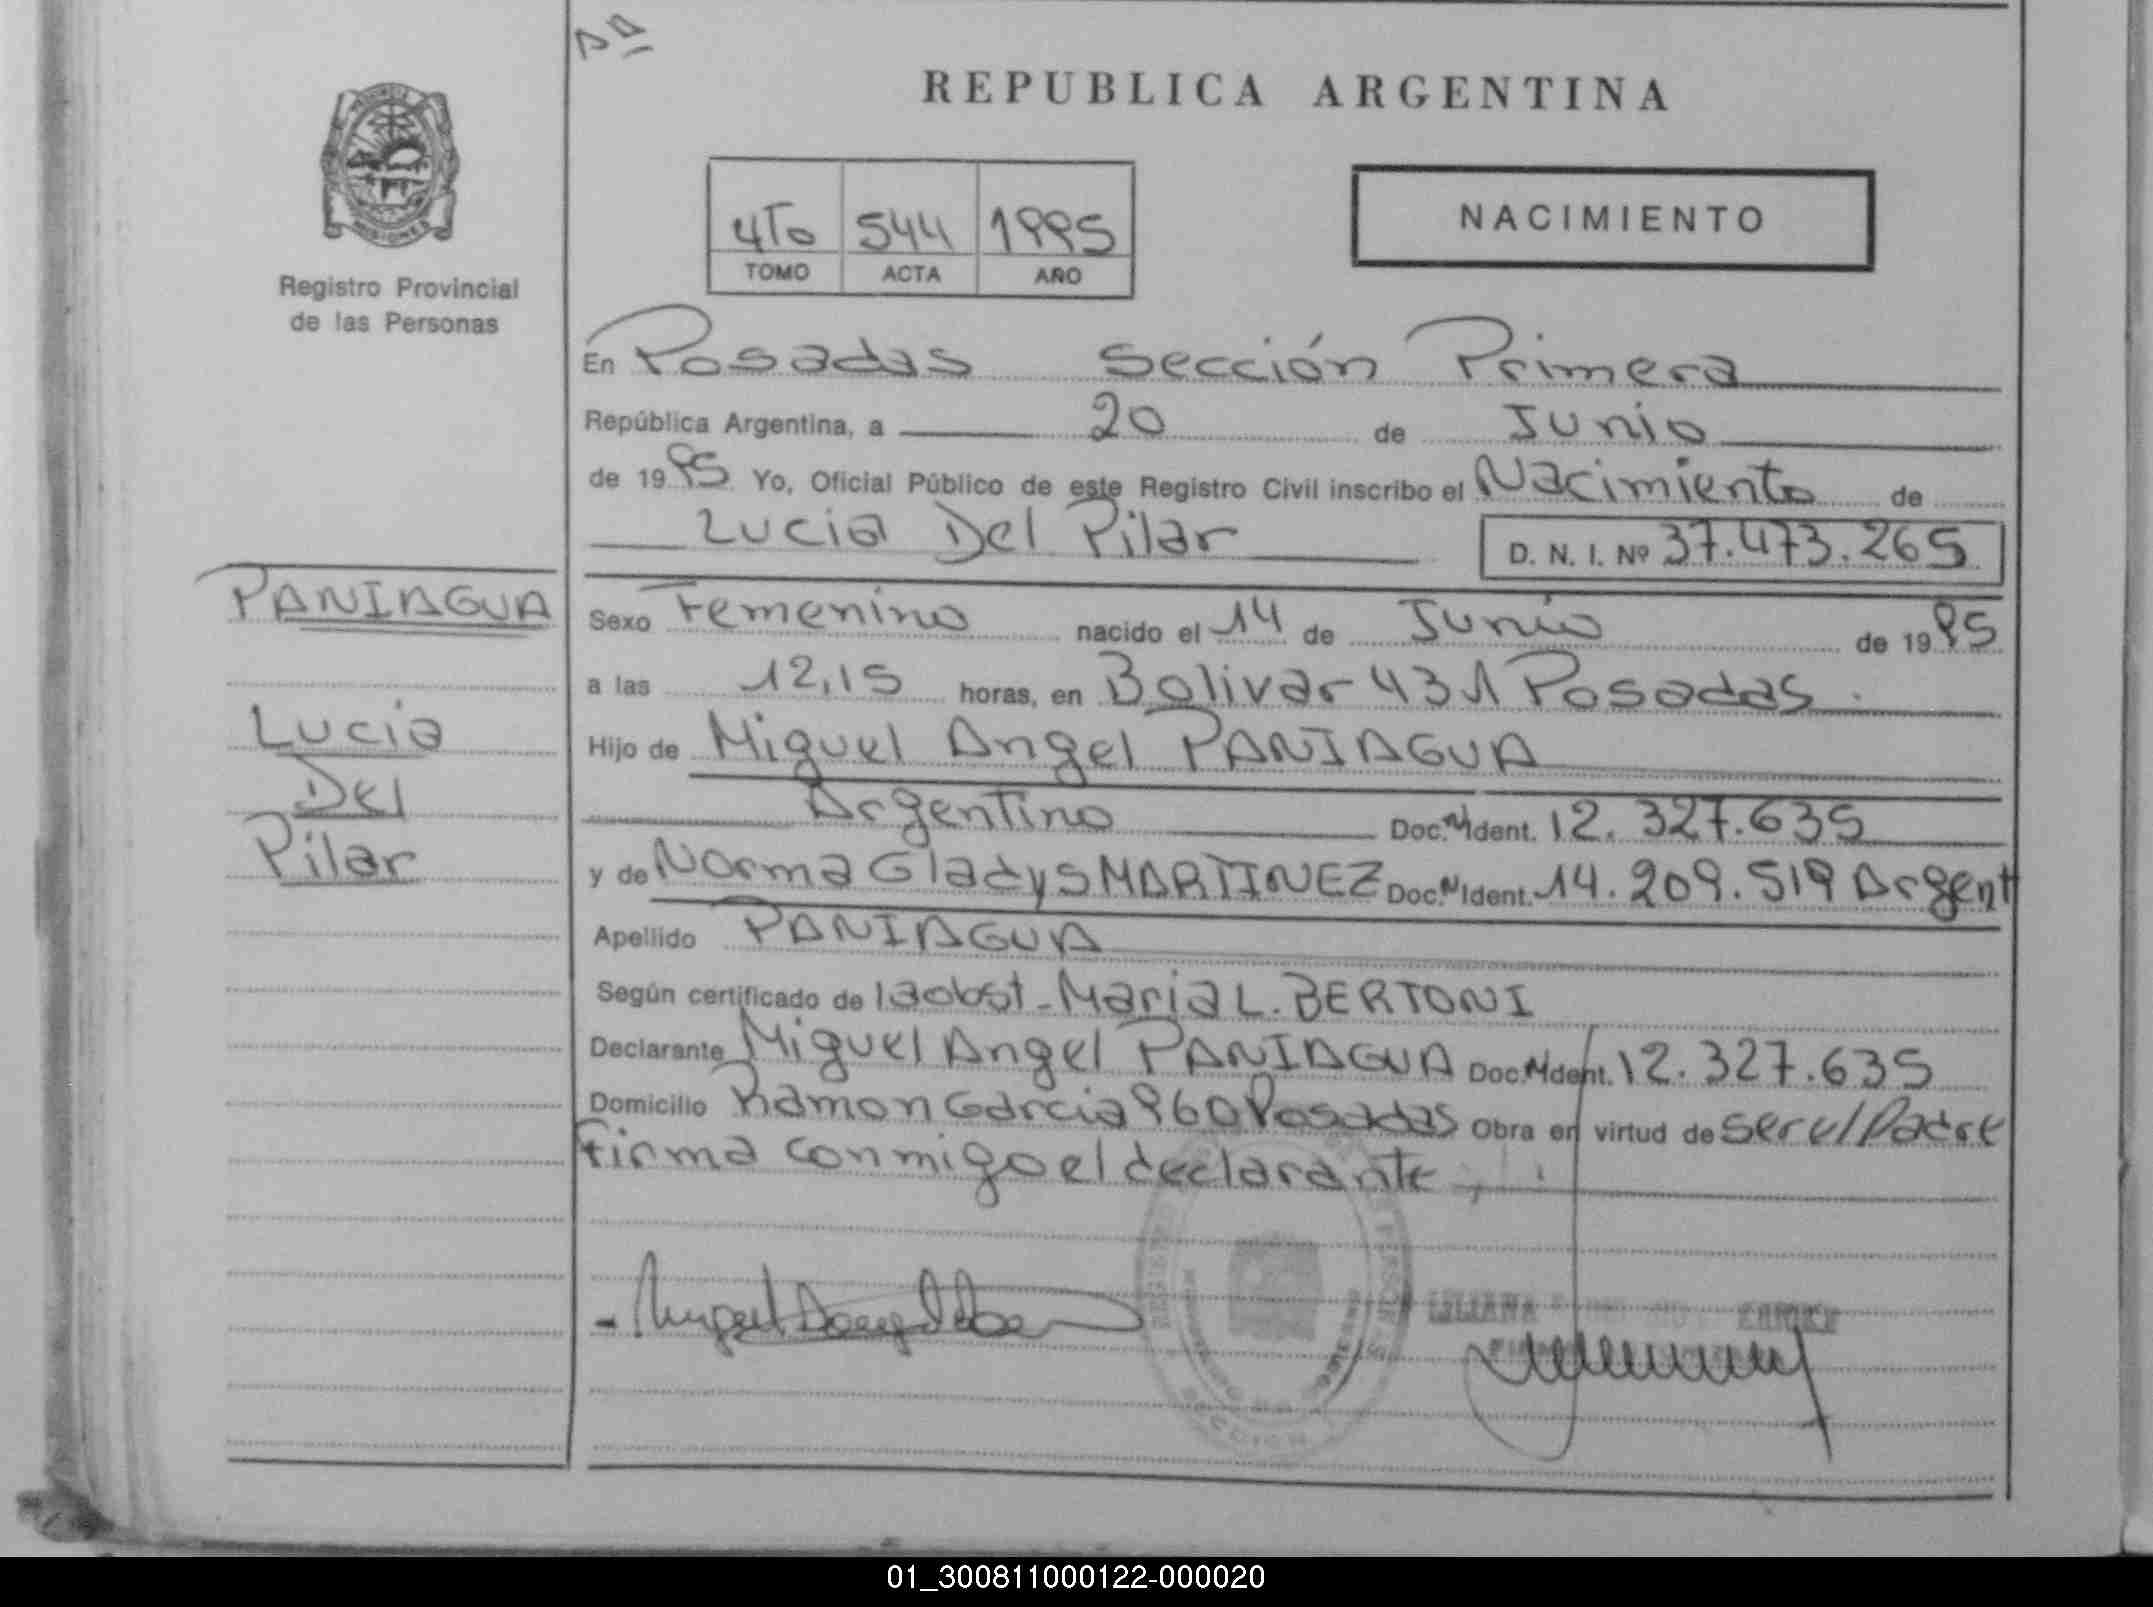 REPUBLICA ARGENTINA
4To 544 1995
TOMO ACTA AÑO
NACIMIENTO
PROVINCIA
MISIONES
Registro Provincial
de las Personas
En Posadas Sección Primera
República Argentina, a 20 de Junio
de 1995 Yo, Oficial Público de este Registro Civil inscribo el Nacimiento de
Lucia Del Pilar D. N. I. Nº 37.473.265
PANIAGUA
Lucia
Del
Pilar
Sexo Femenino nacido el 14 de Junio de 1995
a las 12,15 horas, en Bolivar 431 Posadas.
Hijo de Miguel Angel PANIAGUA
Argentino Doc. Ident. 12.327.635
y de Norma Gladys MARTINEZ Doc. Ident. 14.209.519 Argent
Apellido PANIAGUA
Según certificado de la obst. Maria L. BERTONI
Declarante Miguel Angel PANIAGUA Doc. Ident. 12.327.635
Domicilio Ramon Garcia 960 Posadas Obra en virtud de ser el Padre
firma conmigo el declarante
LILIANA
SECCION
01_300811000122-000020